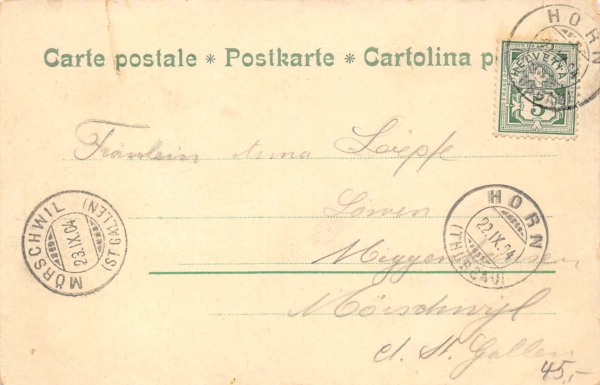 Carte postale * Postkarte * Cartolina p
HORN
HELVETIA
5
Fräulein Anna
Löwen
Mörschwyl
ct. St. Gallen
MÖRSCHWIL
23.IX.04
(ST. GALLEN)
HORN
22.IX.04
(THURGAU)
45,-